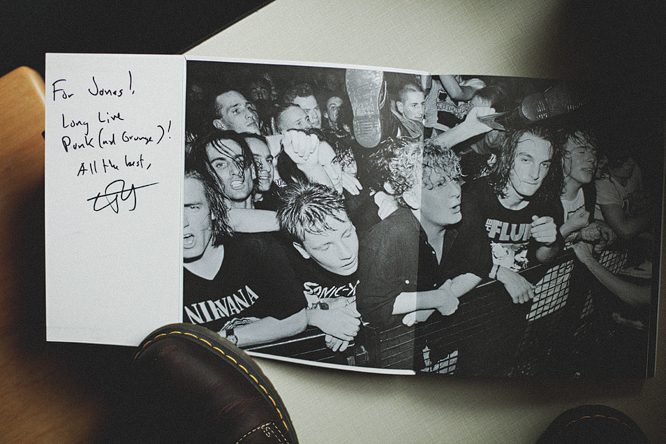 For Jonas!
Long Live
Punk (and Grunge)!
All the best,
NIRVANA
SONIC-Y
FLUI